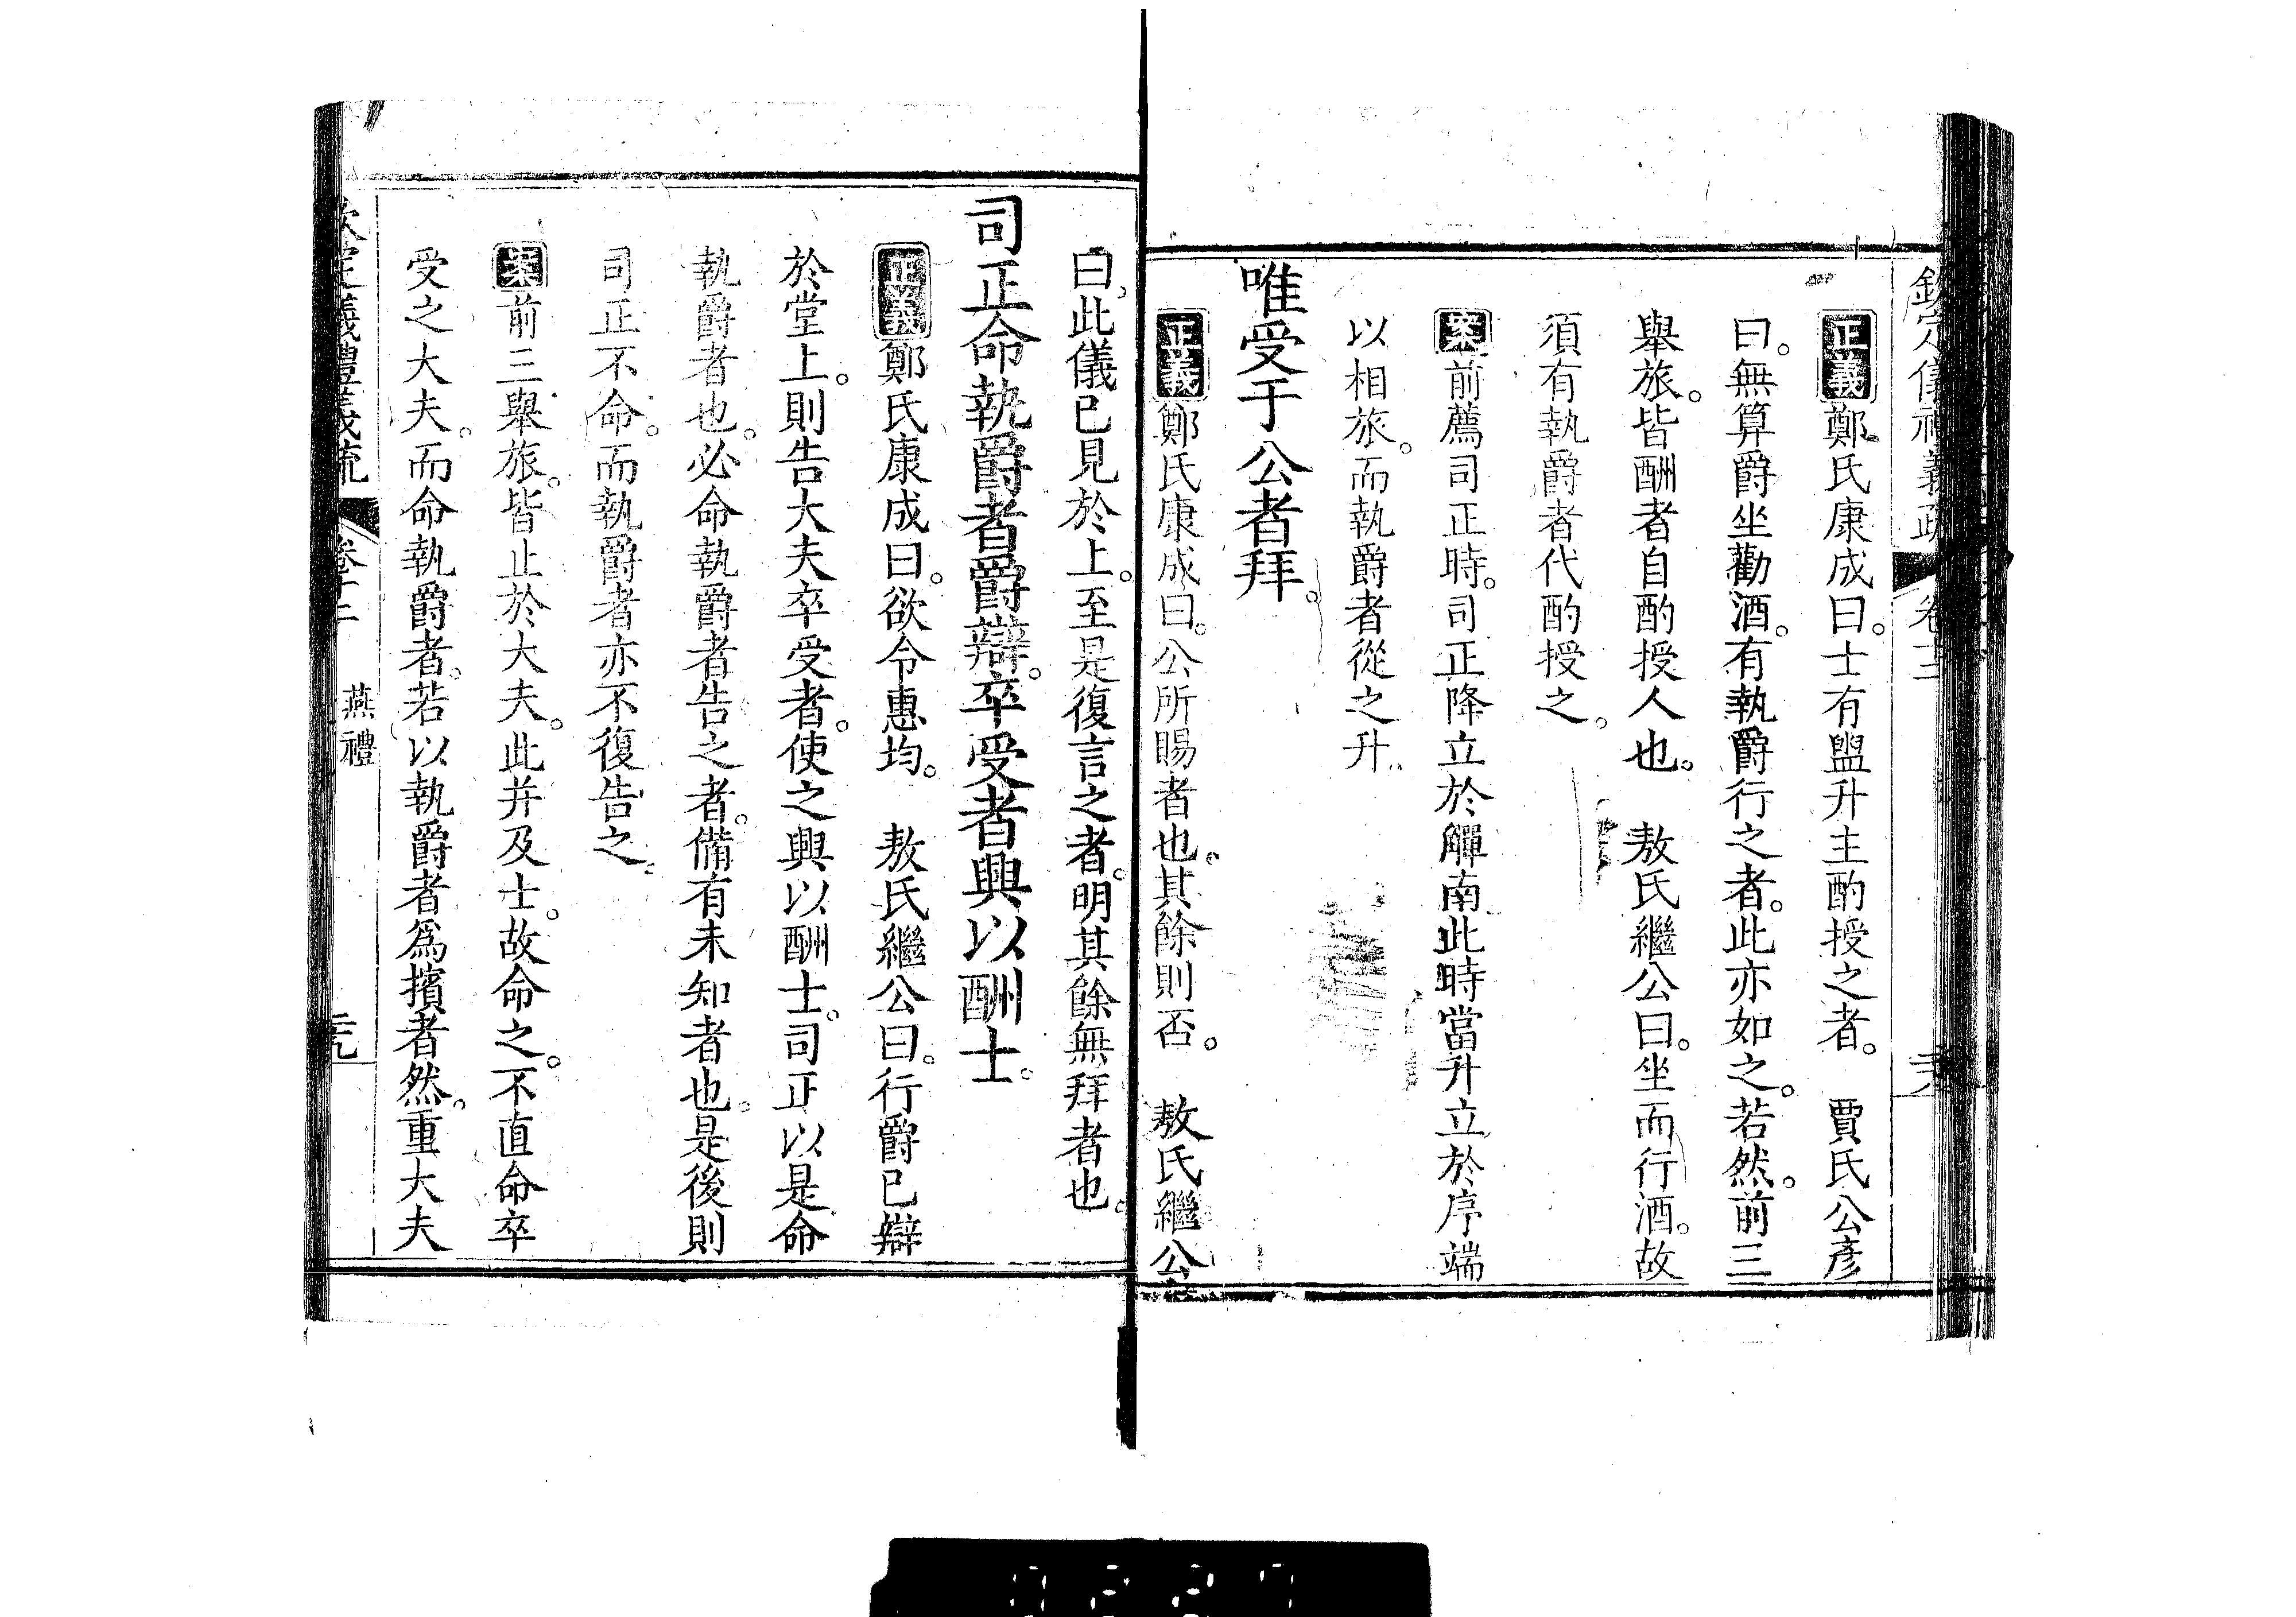 欽定儀禮義疏 卷十二
正義鄭氏康成曰。士有盥升主酌授之者。 賈氏公彥
曰。無算爵坐勸酒。有執爵行之者。此亦如之。若然。前三
舉旅。皆酬者自酌授人也。 敖氏繼公曰。坐而行酒。故
須有執爵者代酌授之。
案前薦司正時。司正降立於觶南此時當升立於序端
以相旅。而執爵者從之升。
唯受于公者拜。
正義鄭氏康成曰。公所賜者也。其餘則否。 敖氏繼公
曰。此儀已見於上。至是復言之者。明其餘無拜者也。
司正命執爵者爵辯。卒受者興以酬士。
正義鄭氏康成曰。欲令惠均。 敖氏繼公曰。行爵已辯
於堂上。則告大夫卒受者。使之興以酬士。司正以是命
執爵者也。必命執爵者告之者。備有未知者也。是後則
司正不命。而執爵者亦不復告之。
案前三舉旅。皆止於大夫。此并及士。故命之。不直命卒
受之大夫。而命執爵者。若以執爵者為擯者然。重大夫
欽定儀禮義疏 卷十二 燕禮 二九